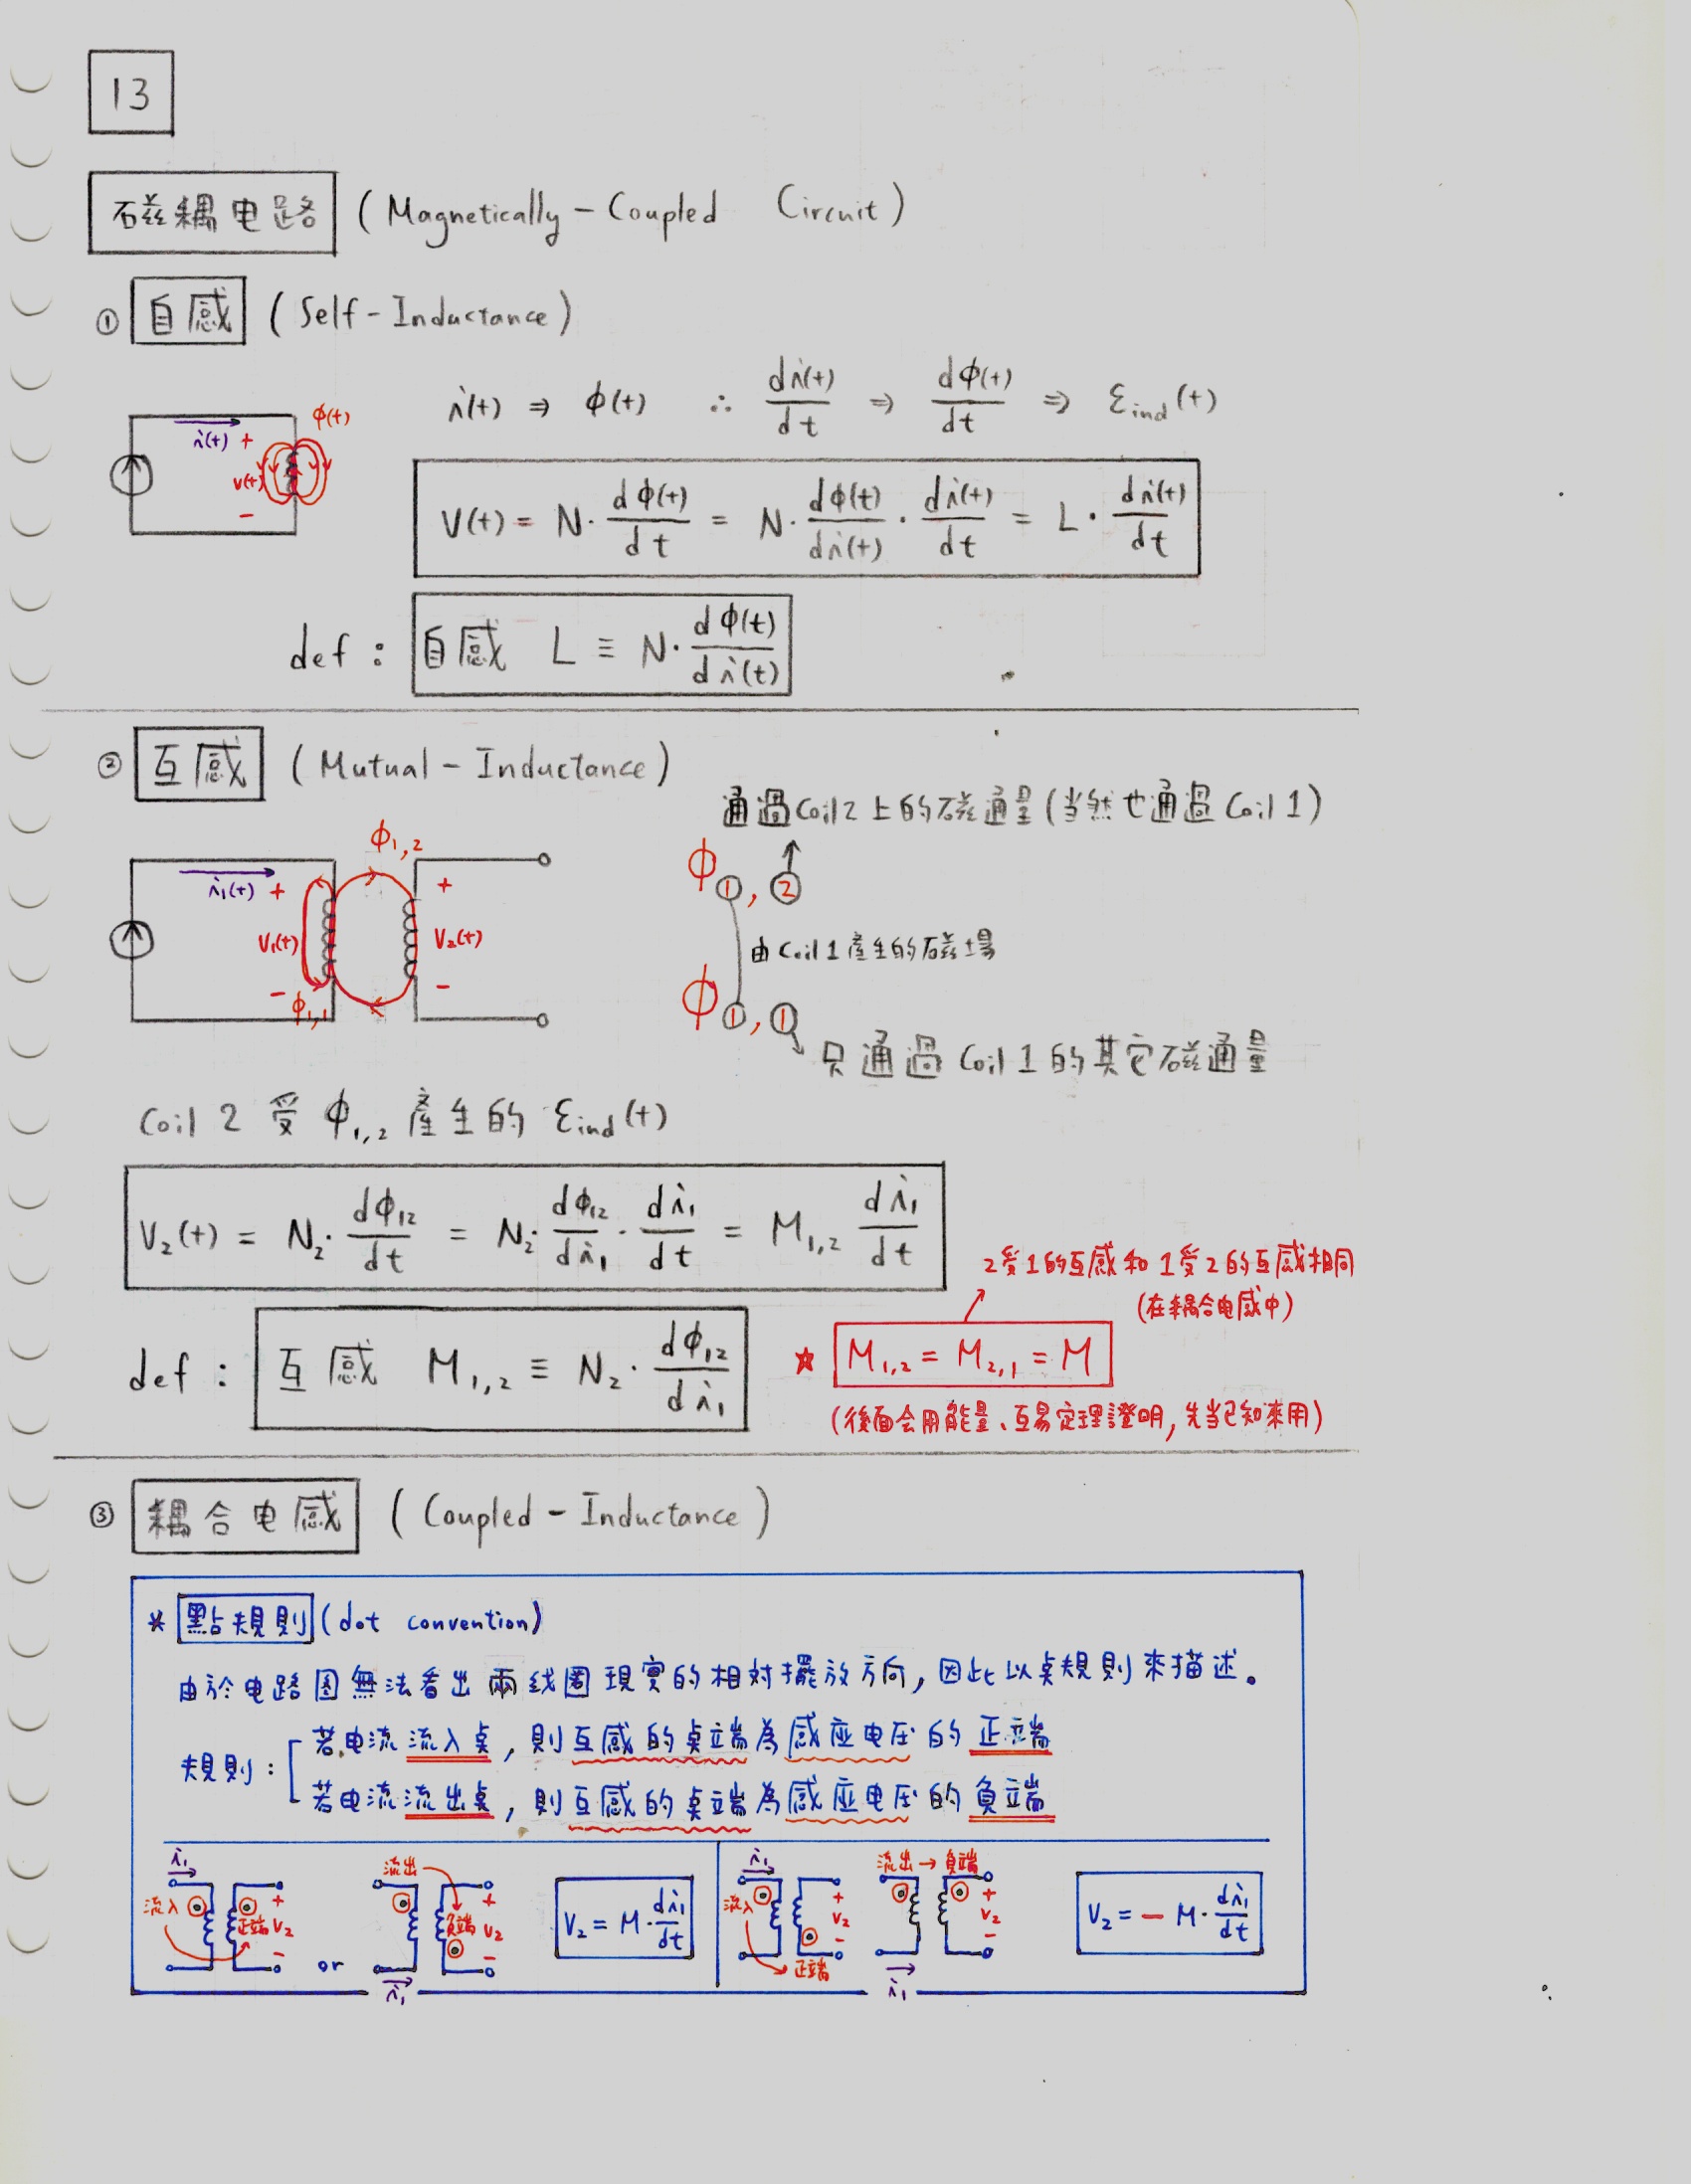 13
磁耦电路 (Magnetically-Coupled Circuit)
① 自感 (Self-Inductance)
i(t) ⇒ φ(t) ∴ di(t)/dt ⇒ dφ(t)/dt ⇒ ε_ind(t)
i(t) + v(t) - φ(t)
V(t) = N · dφ(t)/dt = N · dφ(t)/di(t) · di(t)/dt = L · di(t)/dt
def : 自感 L ≡ N · dφ(t)/di(t)
② 互感 (Mutual-Inductance)
通過 Coil 2 上的磁通量 (当然也通過 Coil 1)
φ①,②
由 Coil 1 產生的磁場
φ①,①
只通過 Coil 1 的其它磁通量
i₁(t) + V₁(t) - φ₁,₁ φ₁,₂ + V₂(t) -
Coil 2 受 φ₁,₂ 產生的 ε_ind(t)
V₂(t) = N₂ · dφ₁₂/dt = N₂ · dφ₁₂/di₁ · di₁/dt = M₁,₂ di₁/dt
2受1的互感和1受2的互感相同
(在耦合电感中)
def : 互感 M₁,₂ ≡ N₂ · dφ₁₂/di₁
☆ M₁,₂ = M₂,₁ = M
(後面会用能量、互易定理證明, 先当已知來用)
③ 耦合电感 (Coupled-Inductance)
* 點規則 (dot convention)
由於电路図無法看出兩线圈現實的相对擺放方向, 因此以点規則來描述。
規則 :
若电流流入点, 則互感的点端為感应电压的正端
若电流流出点, 則互感的点端為感应电压的負端
i₁ 流入 正端 + V₂ -
or
流出 負端 + V₂ - i₁
V₂ = M · di₁/dt
i₁ 流入 正端 + V₂ -
流出 → 負端 + V₂ - i₁
V₂ = - M · di₁/dt